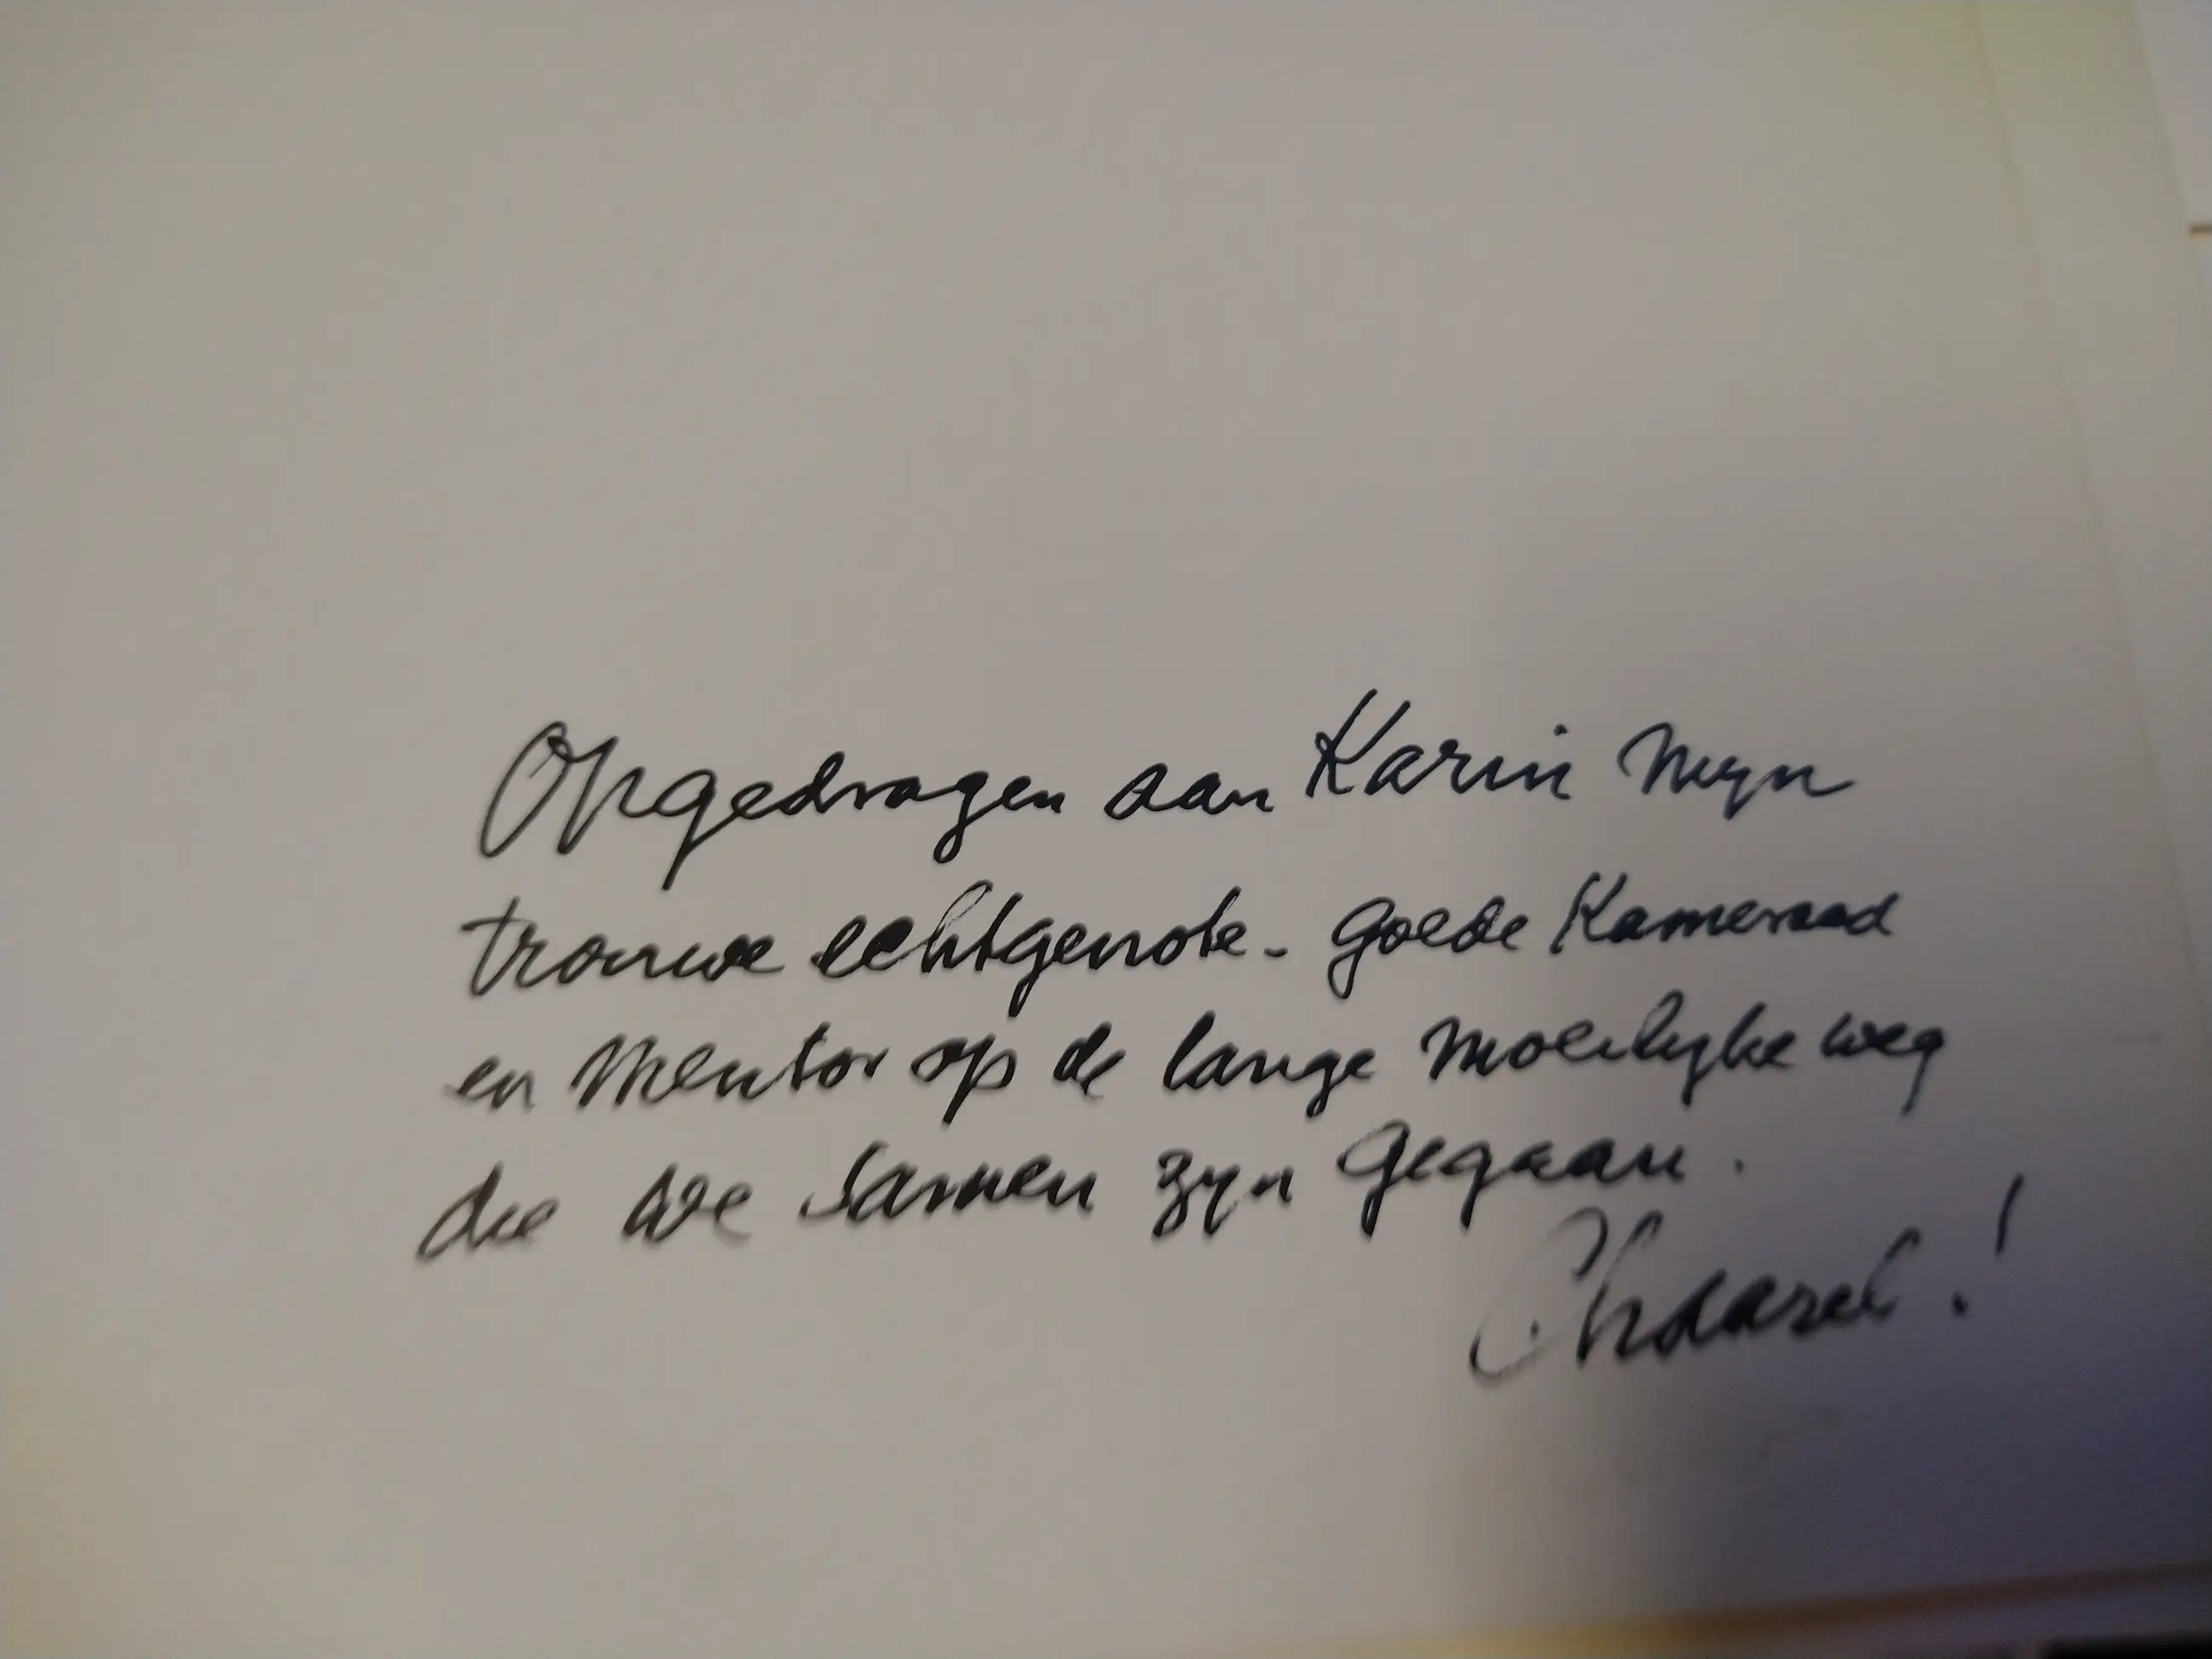 Opgedragen aan Karin myn
trouwe echtgenote - goede Kameraad
en mentor op de lange moeilyke weg
die we samen zyn gegaan.